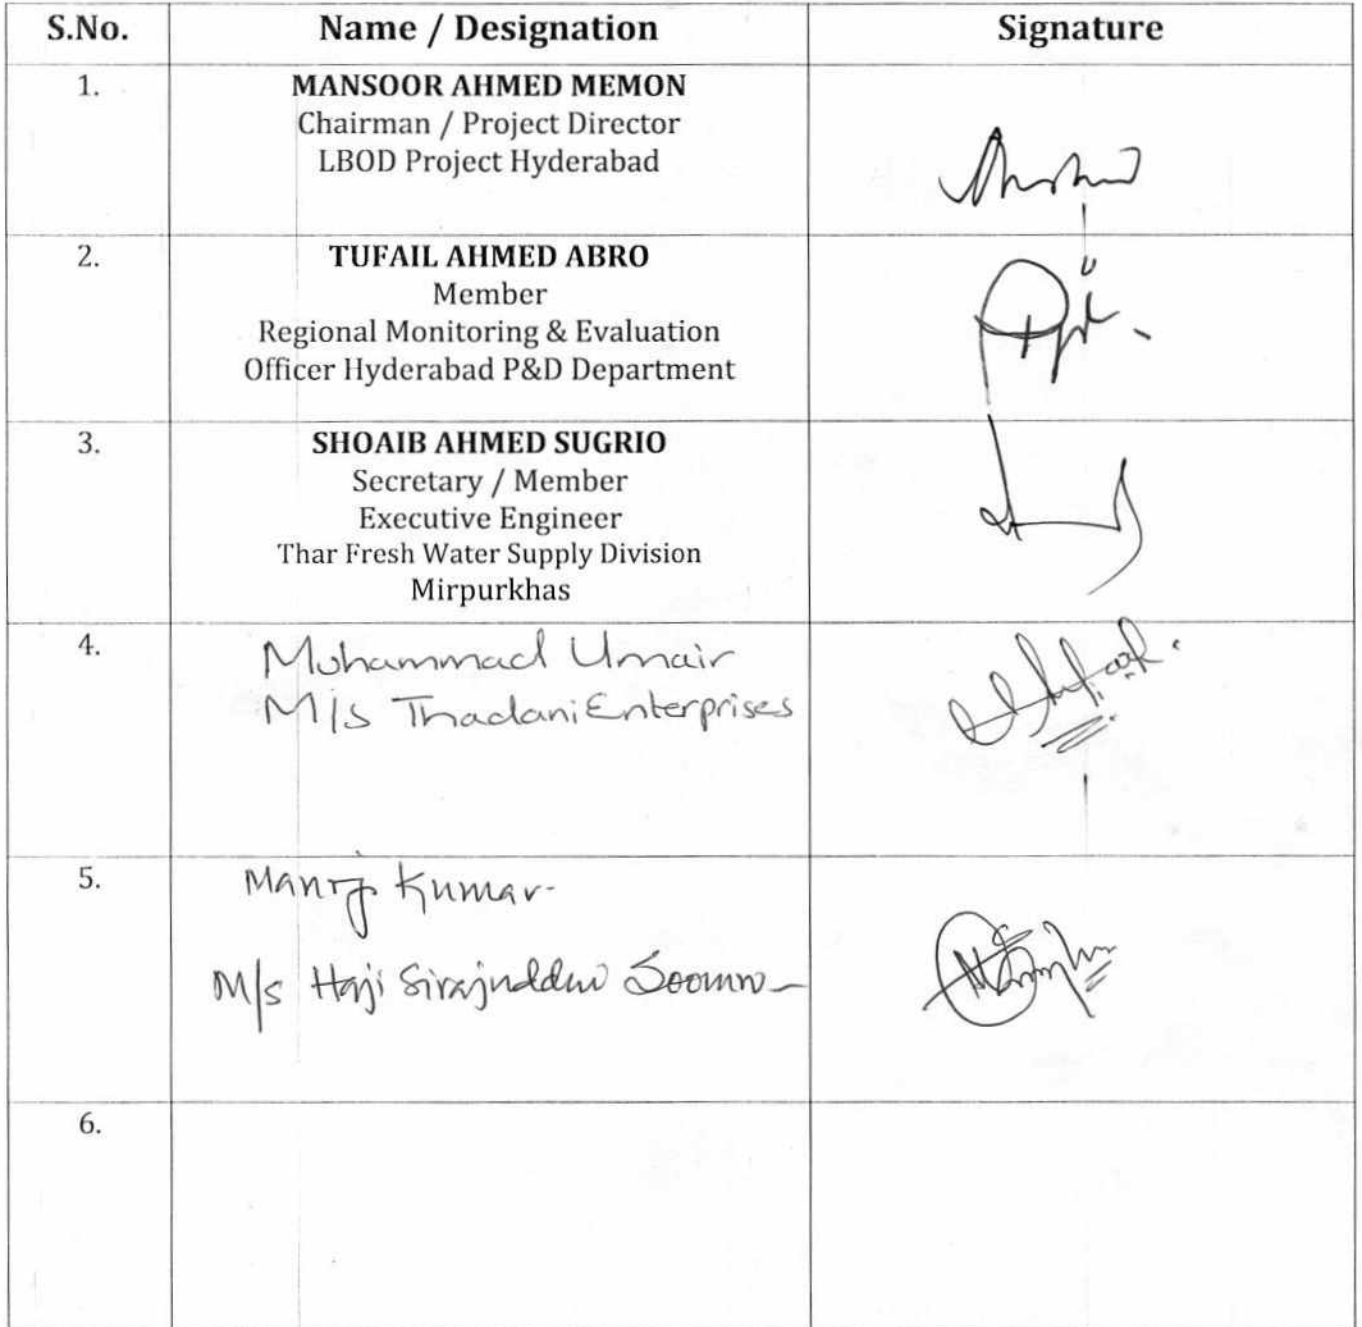 S.No. Name / Designation Signature
1. MANSOOR AHMED MEMON
Chairman / Project Director
LBOD Project Hyderabad
2. TUFAIL AHMED ABRO
Member
Regional Monitoring & Evaluation
Officer Hyderabad P&D Department
3. SHOAIB AHMED SUGRIO
Secretary / Member
Executive Engineer
Thar Fresh Water Supply Division
Mirpurkhas
4. Muhammad Umair
M/s Thadani Enterprises
5. Manoj Kumar
M/s Haji Sirajuddin Soomro
6.